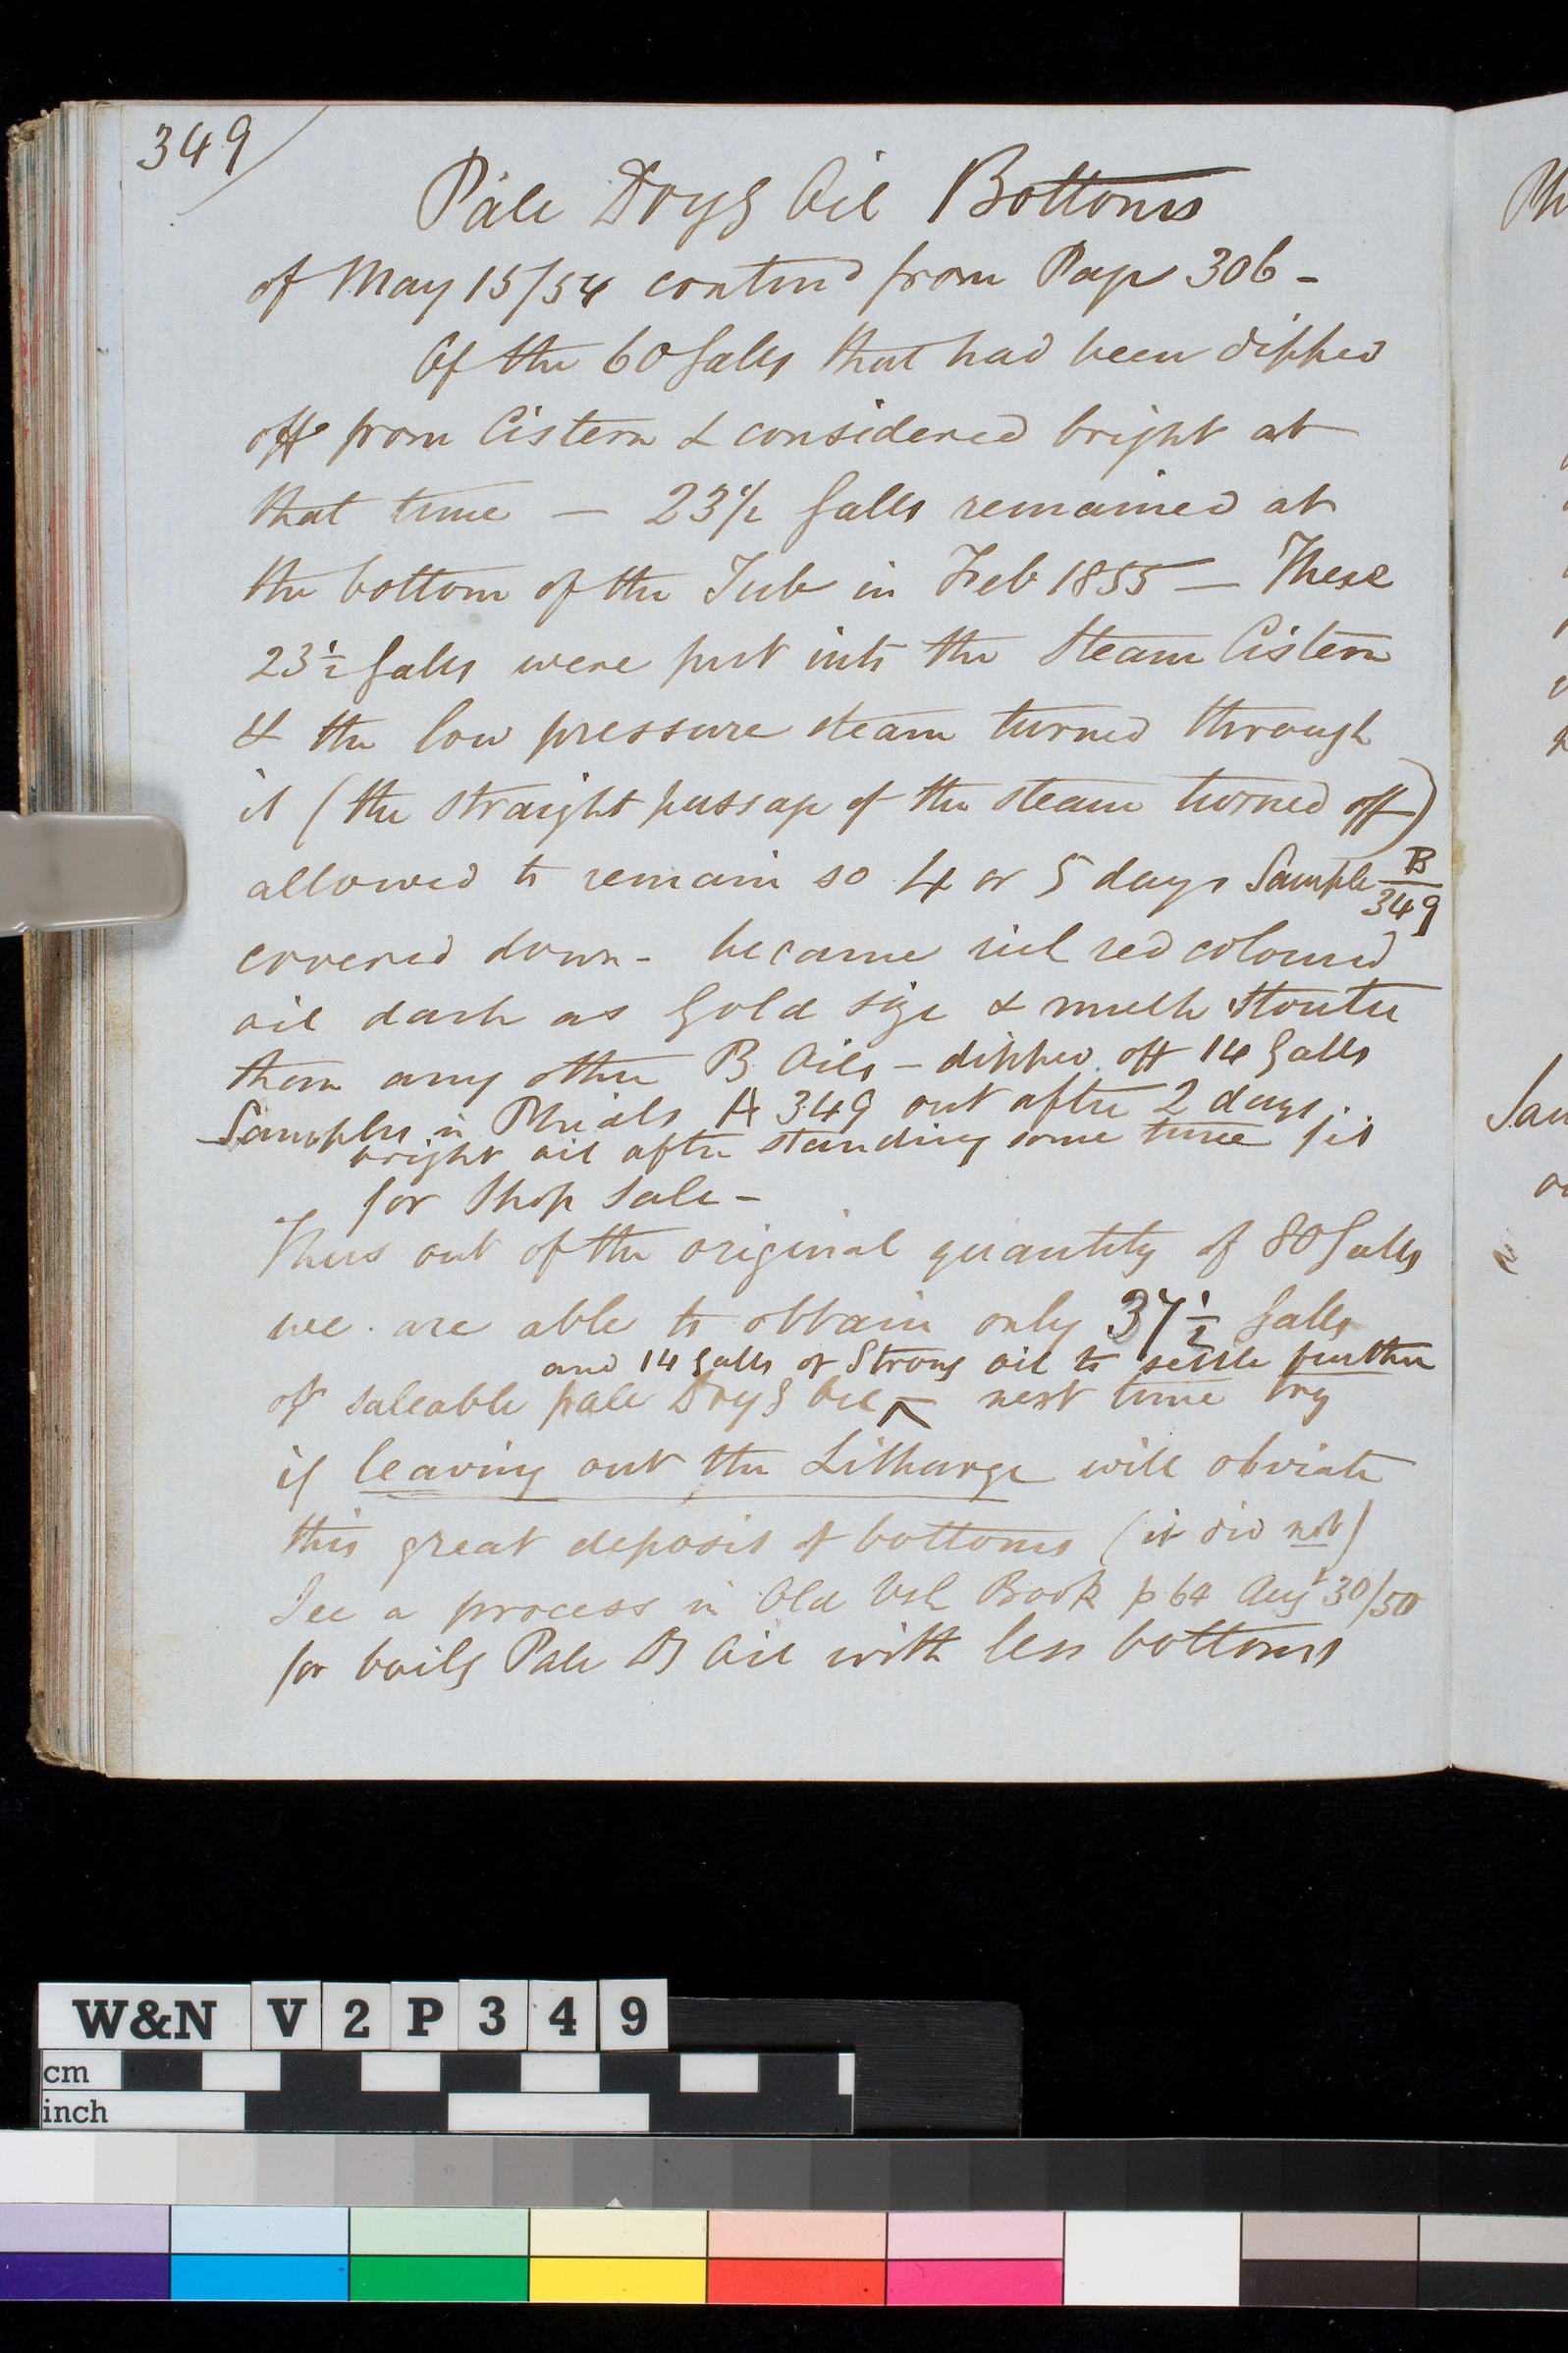 349/
Pale Dryg Oil Bottoms
of May 15/54 contind from Page 306 -
Of the 60 Galls that had been dipped
off from Cistern & considered bright at
that time — 23½ Galls remained at
the bottom of the Tub in Feb 1855 — These
23½ Galls were put into the Steam Cistern
& the low pressure steam turned through
it (the straight passage of the steam turned off)
allowed to remain so 4 or 5 days Sample B/349
covered down - became rich red coloured
oil dark as Gold size & much stouter
than any other B Oils - dipped off 14 Galls
Samples in Phials A 349 out after 2 days
bright oil after standing some time fit
for Shop Sale -
Thus out of the original quantity of 80 Galls
we are able to obtain only 37½ Galls
and 14 Galls of Strong oil to settle further
of saleable pale Dryg Oil ^ — next time try
if leaving out the Litharge will obviate
this great deposit of bottoms (it did not)
See a process in Old Vsh Book p 64 Augt 30/50
for boilg Pale D Oil with less bottoms
Sam
W&N V2P349
cm
inch